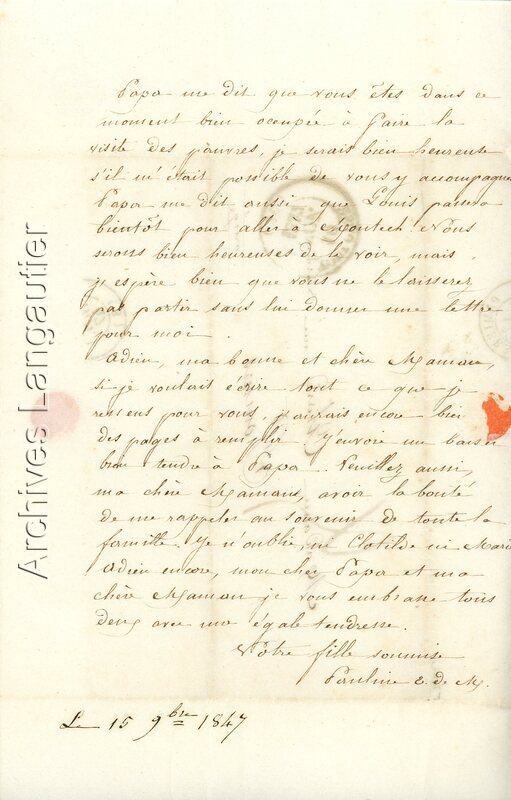 Papa me dit que vous êtes dans ce
moment bien occupée à faire la
visite des pauvres, je serais bien heureuse
s'il m'était possible de vous y accompagner
Papa me dit aussi que Louis passera
bientôt pour aller à Montech Nous
serons bien heureuses de le voir, mais
j'espère bien que vous ne le laisserez
pas partir sans lui donner une lettre
pour moi.
Adieu, ma bonne et chère Maman,
si je voulais écrire tout ce que je
ressens pour vous, j'aurais encore bien
des pages à remplir. J'envoie un baiser
bien tendre à Papa. Veuillez aussi,
ma chère Maman, avoir la bonté
de me rappeler au souvenir de toute la
famille. Je n'oublie, ni Clotilde ni Marie
Adieu encore, mon cher Papa et ma
chère Maman je vous embrasse tous
deux avec une égale tendresse.
Votre fille soumise
Pauline E. de M.
Le 15 9bre 1847
Archives Langautier